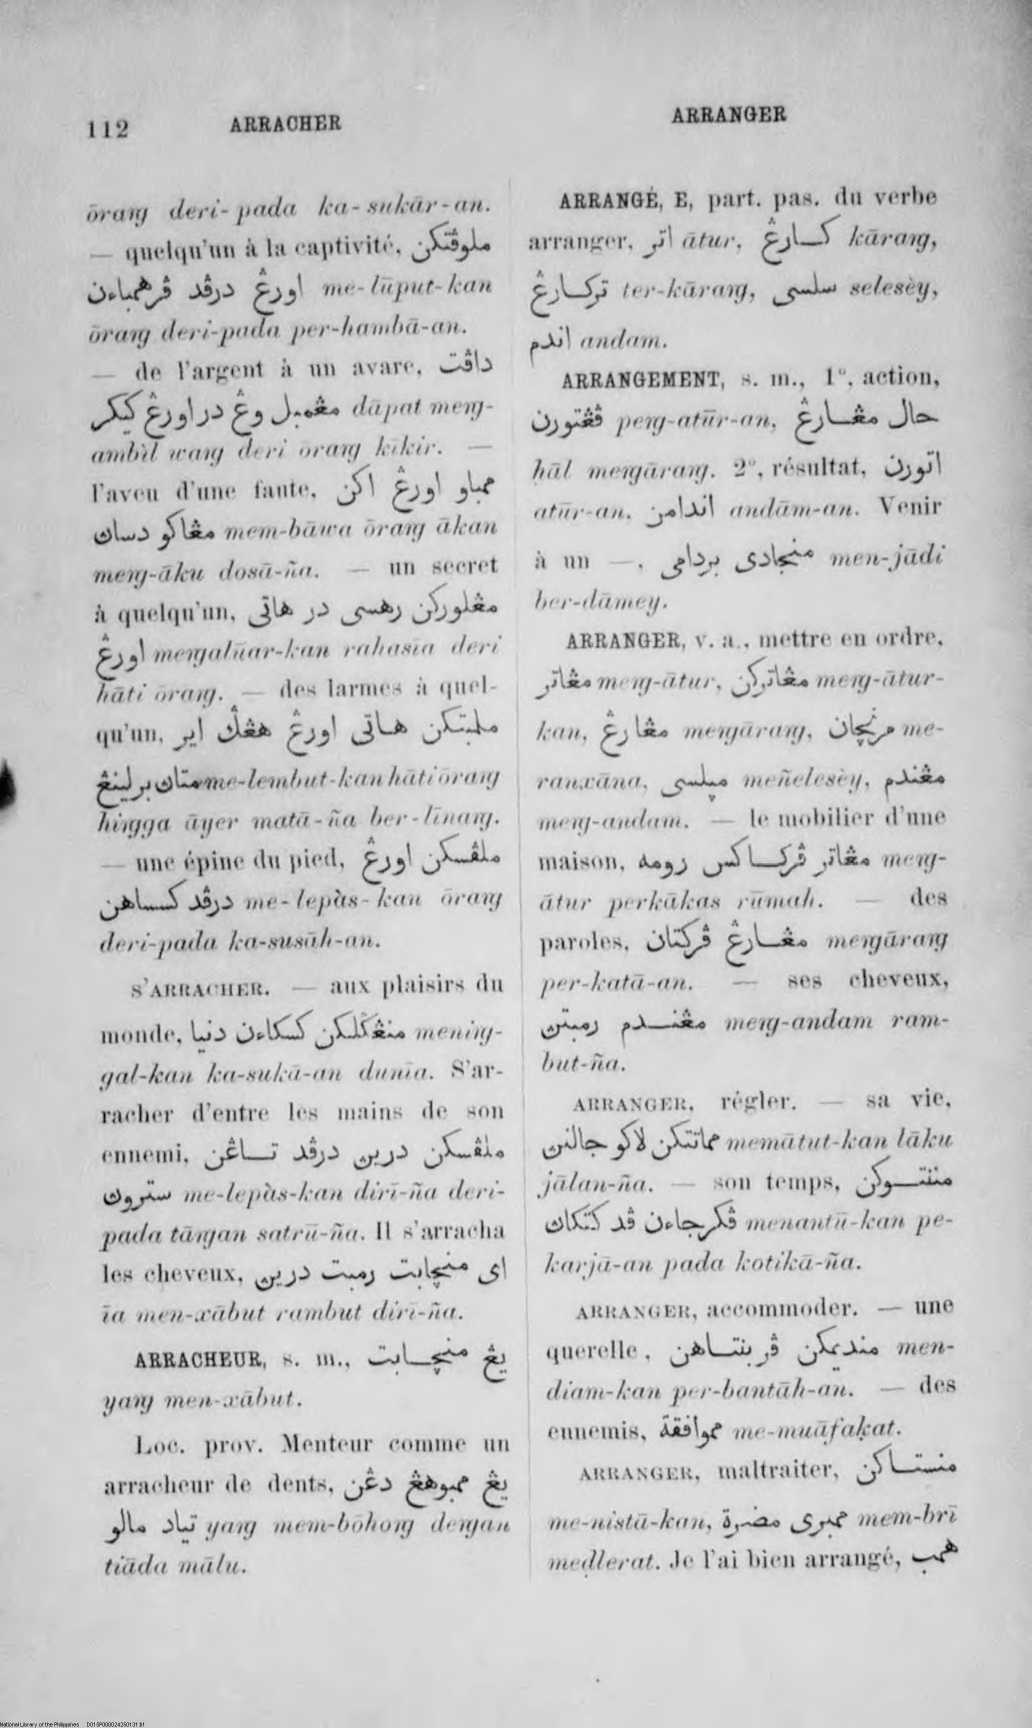 112 ARRACHER ARRANGER
ōrarg deri-pada ka-sukār-an.
— quelqu'un à la captivité, ملوڤتكن
اورڠ درڤد ڤرهمباءن me-lūput-kan
ōrarg deri-pada per-hambā-an.
— de l'argent à un avare, داڤت
مڠمبل وڠ در اورڠ كيكر dāpat merg-
ambil warg deri ōrarg kīkir. —
l'aveu d'une faute, ممباو اورڠ اكن
مڠاكو دساڽ mem-bāwa ōrarg ākan
merg-āku dosā-ña. — un secret
à quelqu'un, مڠلوركن رهسى در هاتى
اورڠ mergalūar-kan rahasīa deri
hāti ōrarg. — des larmes à quel-
qu'un, ملمبتكن هاتى اورڠ هڠڬ اير
متاڽ برلينڠ me-lembut-kan hāti ōrarg
hirgga āyer matā-ña ber-līnarg.
— une épine du pied, ملڤسكن اورڠ
درڤد كسساهن me-lepàs-kan ōrarg
deri-pada ka-susāh-an.
S'ARRACHER. — aux plaisirs du
monde, منڠڬلكن كسكاءن دنيا menirg-
gal-kan ka-sukā-an dunīa. S'ar-
racher d'entre les mains de son
ennemi, ملڤسكن درين درڤد تاڠن
ستروڽ me-lepàs-kan dirī-ña deri-
pada tārgan satrū-ña. Il s'arracha
les cheveux, اى منچابت رمبت درين
īa men-xābut rambut dirī-ña.
ARRACHEUR, s. m., يڠ منچابت
yarg men-xābut.
Loc. prov. Menteur comme un
arracheur de dents, يڠ ممبوهڠ دڠن
تياد مالو yarg mem-bōhorg dergan
tiāda mālu.
ARRANGÉ, E, part. pas. du verbe
arranger, اتر ātur, كارڠ kārarg,
تركارڠ ter-kārarg, سلسى selesèy,
اندم andam.
ARRANGEMENT, s. m., 1°, action,
ڤڠتورن perg-atūr-an, حال مڠارڠ
ḥāl mergārarg. 2°, résultat, اتورن
atūr-an. اندامن andām-an. Venir
à un —, منجادى بردامى men-jādi
ber-dāmey.
ARRANGER, v. a., mettre en ordre,
مڠاتر merg-ātur, مڠاتركن merg-ātur-
kan, مڠارڠ mergārarg, مرنچان me-
ranxāna, مپلسى meñelesèy, مڠندم
merg-andam. — le mobilier d'une
maison, مڠاتر ڤركاكس رومه merg-
ātur perkākas rūmah. — des
paroles, مڠارڠ ڤركتان mergārarg
per-katā-an. — ses cheveux,
مڠندم رمبتن merg-andam ram-
but-ña.
ARRANGER, régler. — sa vie,
مماتتكن لاكو جالنن memātut-kan lāku
jālan-ña. — son temps, مننتوكن
ڤكرجاءن ڤد كتكاڽ menantū-kan pe-
karjā-an pada kotikā-ña.
ARRANGER, accommoder. — une
querelle, منديمكن ڤربنتاهن men-
diam-kan per-bantāh-an. — des
ennemis, مموافقة me-muāfaḳat.
ARRANGER, maltraiter, منستاكن
me-nistā-kan, ممبرى مضرة mem-brī
meḍlerat. Je l'ai bien arrangé, همب
National Library of the Philippines